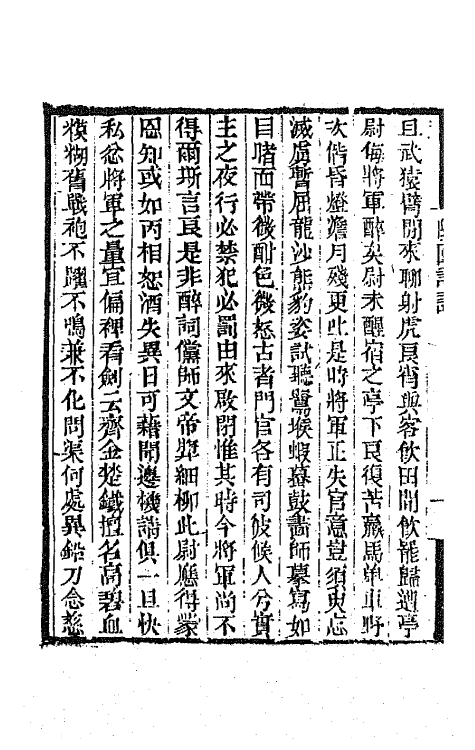 且武猿臂閒來聊射虎良宵與客飲田間飲罷歸遇亭
尉侮將軍醉矣尉未醒宿之亭下良復苦羸馬單車野
次偕昏燈澹月殘更此是時將軍正失官意豈須臾忘
滅虜暫屈龍沙熊豹姿試聽鼍堠蝦蟇鼓畵師摹寫如
目睹面帶微酣色微怒古者門官各有司彼候人兮實
主之夜行必禁犯必罰由來啟閉惟其時今將軍尚不
得爾斯言良是非醉詞儻師文帝奬細柳此尉應得蒙
恩知或如丙相恕酒失異日可藉聞邊機誰俱一旦快
私忿將軍之量宜偏裨看劍云齊金楚鐵擅名高碧血
模糊舊戰袍不躍不鳴兼不化問渠何處異鉛刀念慈